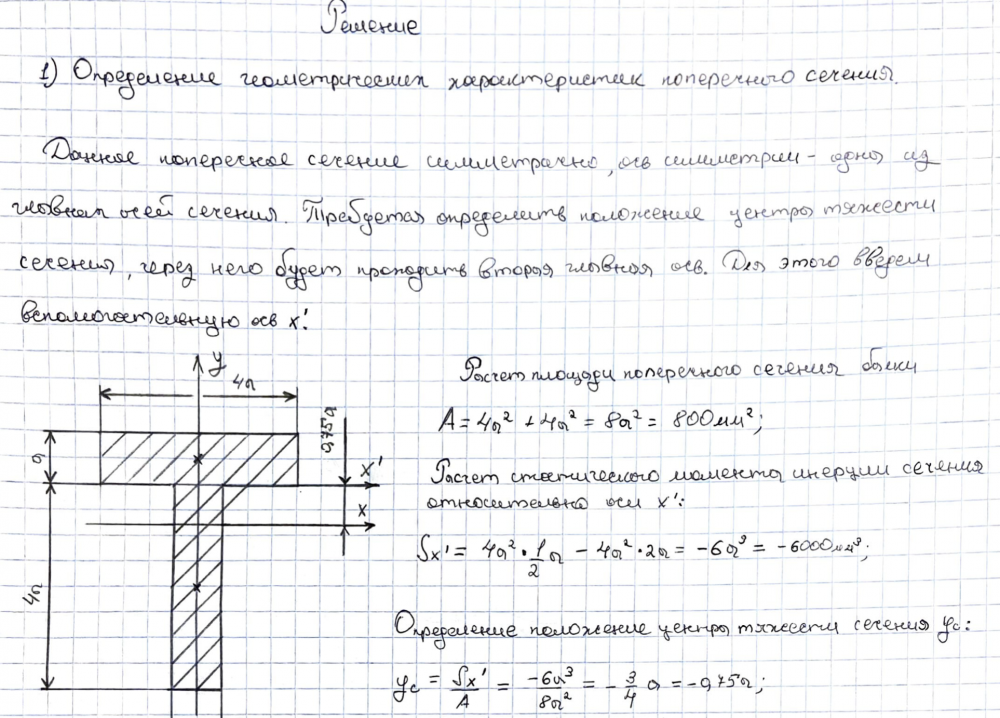 Решение
1) Определение геометрических характеристик поперечного сечения.
Данное поперечное сечение симметрично, ось симметрии - одна из
главных осей сечения. Требуется определить положение центра тяжести
сечения, через него будет проходить вторая главная ось. Для этого введем
вспомогательную ось x'.
y
4a
0,75a
Расчет площади поперечного сечения балки
A = 4a² + 4a² = 8a² = 800мм²;
a
x'
Расчет статического момента инерции сечения
относительно оси x':
x
Sx' = 4a² · 1/2 a - 4a² · 2a = -6a³ = -6000мм³;
4a
Определение положение центра тяжести сечения yc:
yc = Sx'/A = -6a³/8a² = -3/4 a = -0,75a;